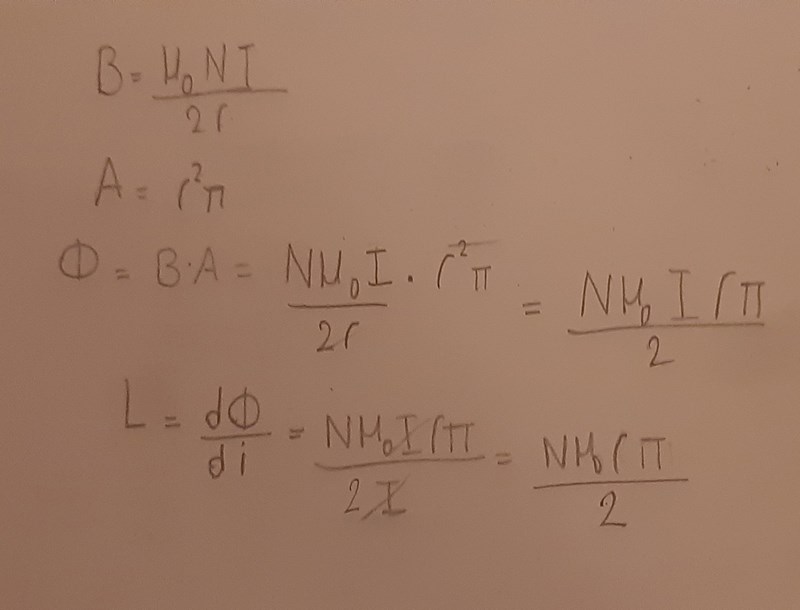 B = μ₀NI / 2r
A = r²π
Φ = B·A = Nμ₀I / 2r · r²π = Nμ₀Irπ / 2
L = dΦ / di = Nμ₀Irπ / 2I = Nμ₀rπ / 2